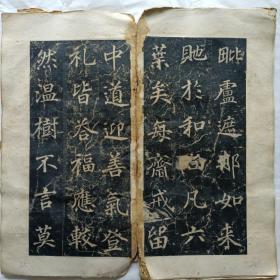 毗盧遮那如来
於和凡六
葉矣每齋戒留
中道迎善氣登
礼皆答福應較
然温樹不言莫